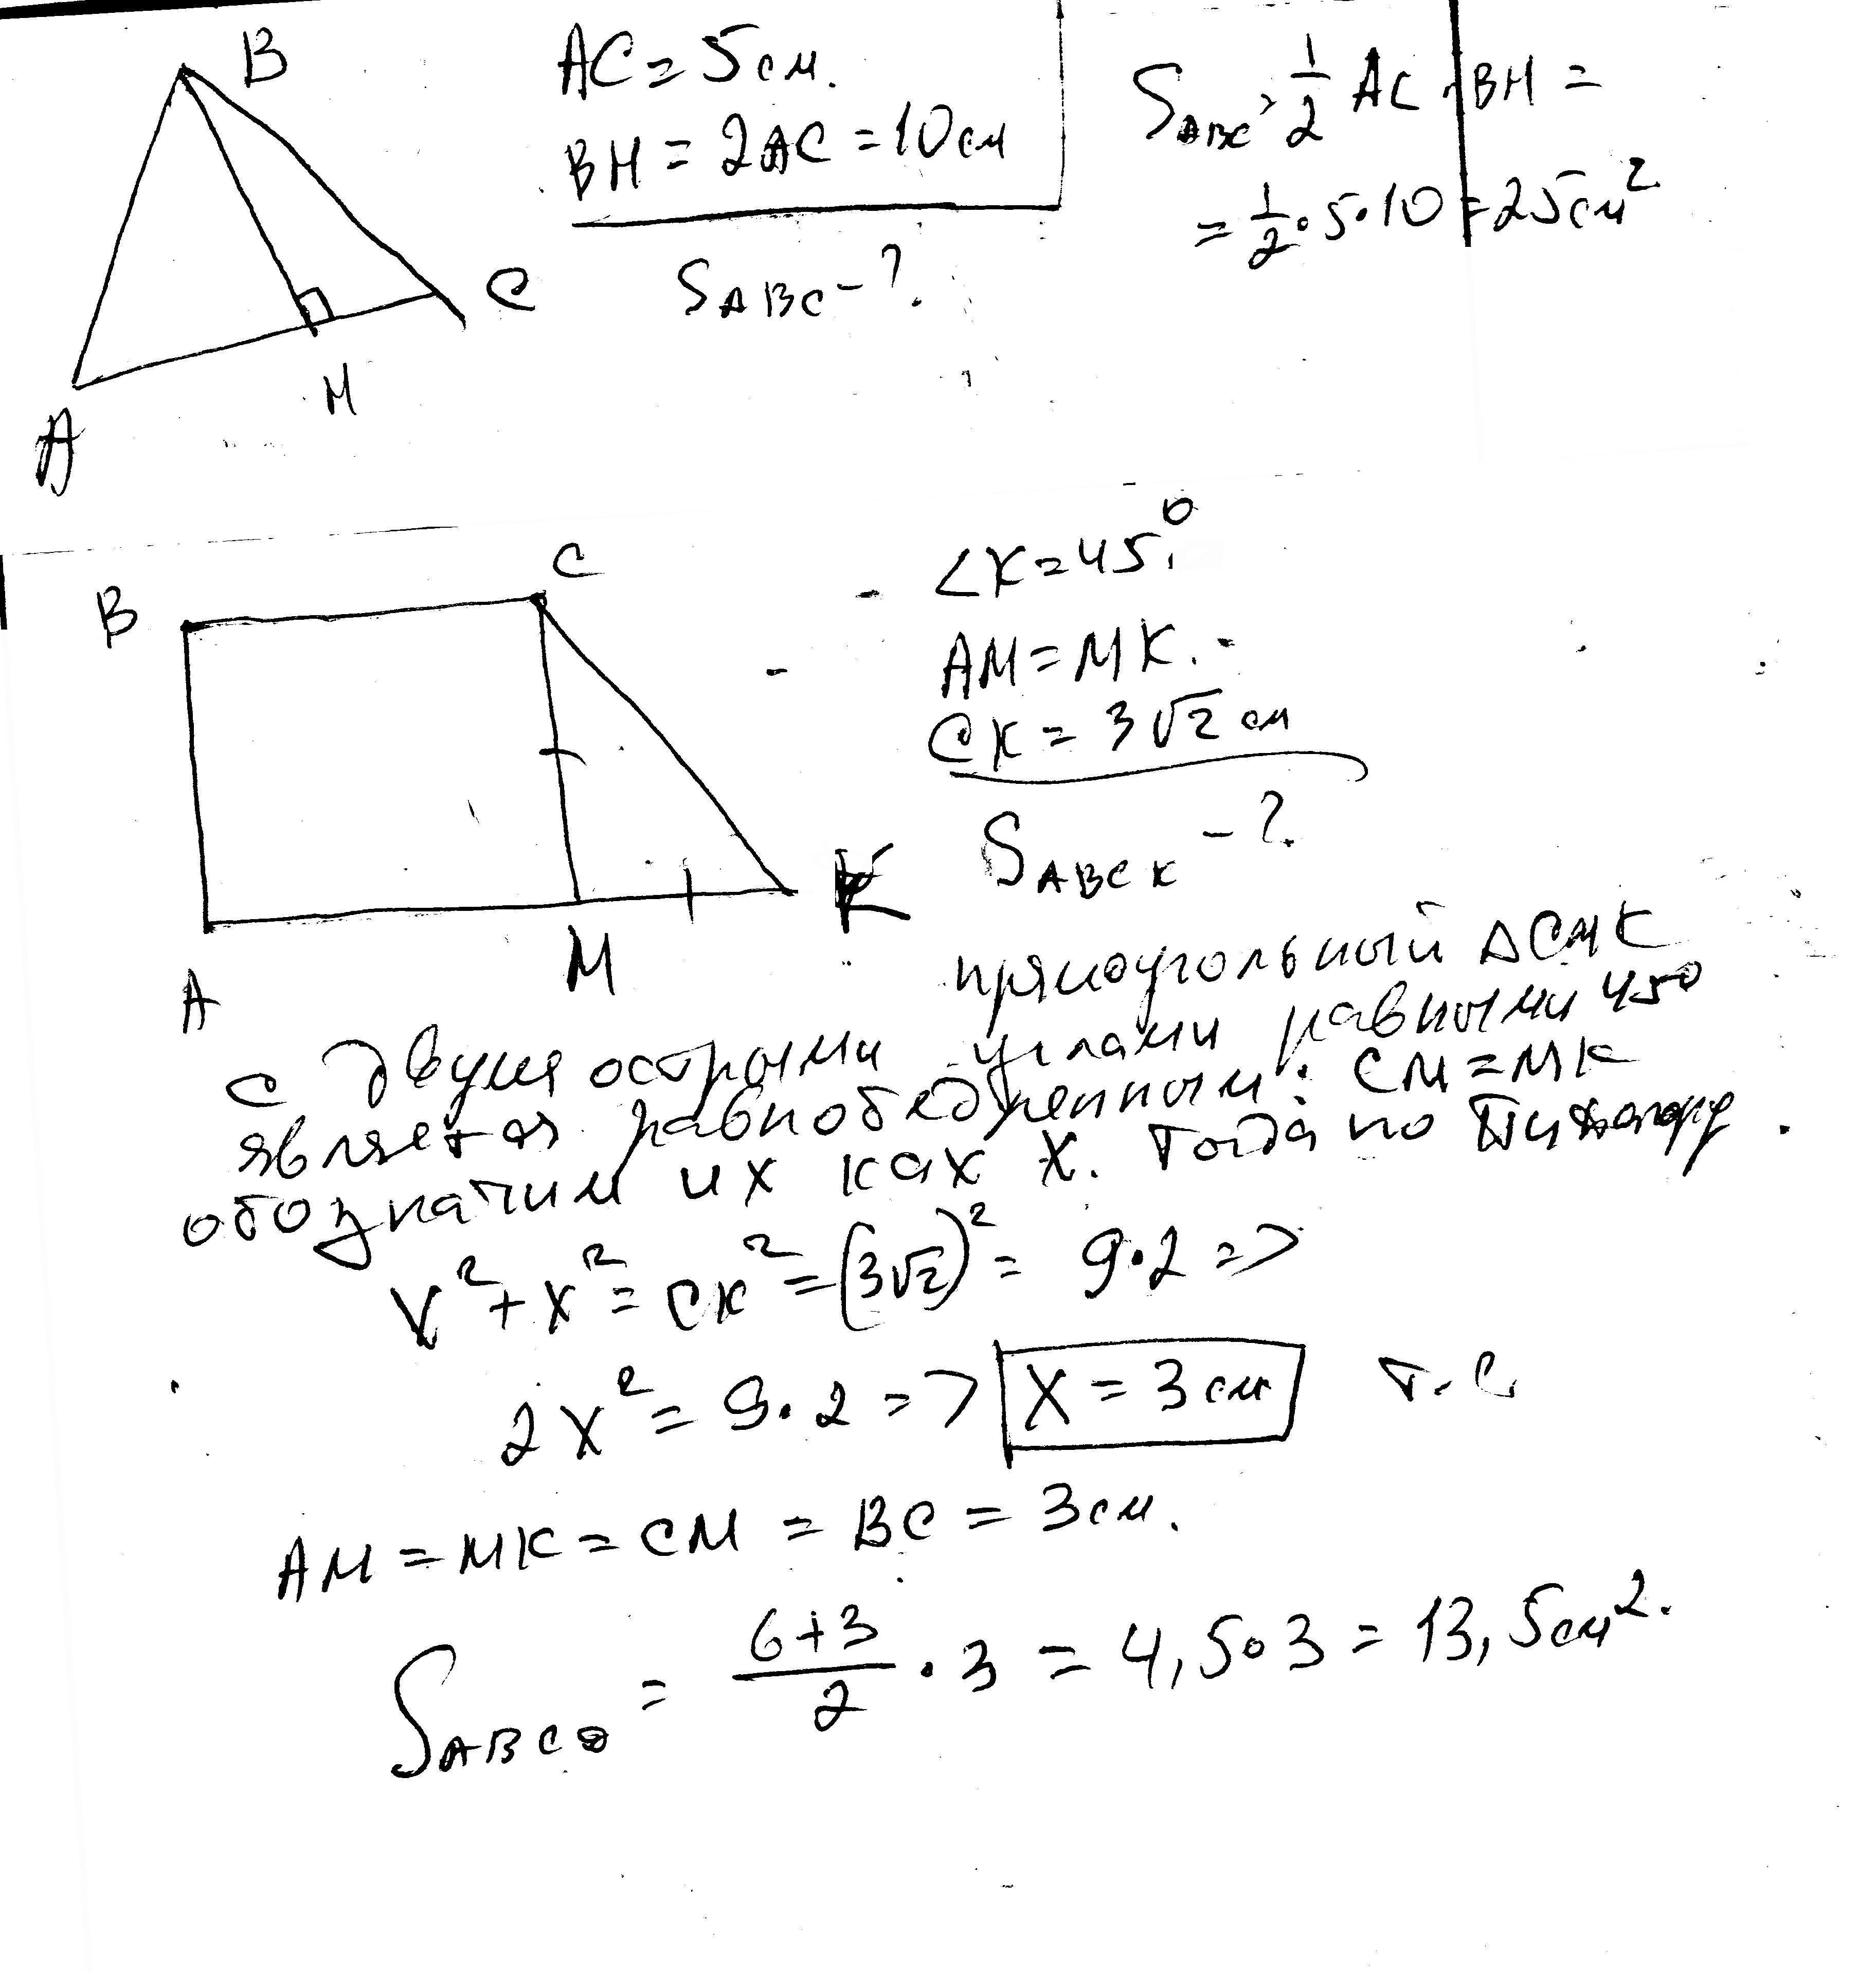 B
AC = 5 см.
BH = 2AC = 10 см
S ABC - ?
S ABC = 1/2 AC · BH =
= 1/2 · 5 · 10 = 25 см²
C
H
A
B
C
∠K = 45°
AM = MK.
CK = 3√2 см
S ABCK - ?
K
M
A
прямоугольный ΔCMK
с двумя острыми углами равными 45°
является равнобедренным: CM = MK
обозначим их как x. Тогда по Пифагору
x² + x² = CK² = (3√2)² = 9·2 =>
2x² = 9·2 => x = 3 см т.е.
AM = MK = CM = BC = 3 см.
S ABC = (6+3)/2 · 3 = 4,5·3 = 13,5 см².